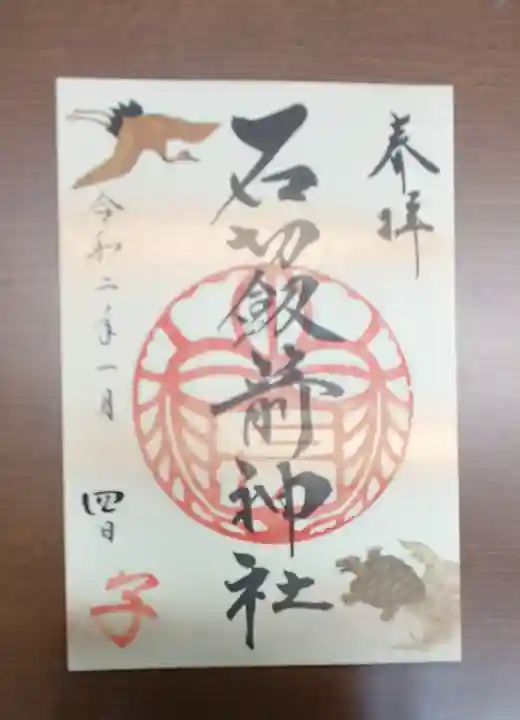 奉拝
石切劔箭神社
令和二年一月
四日
子